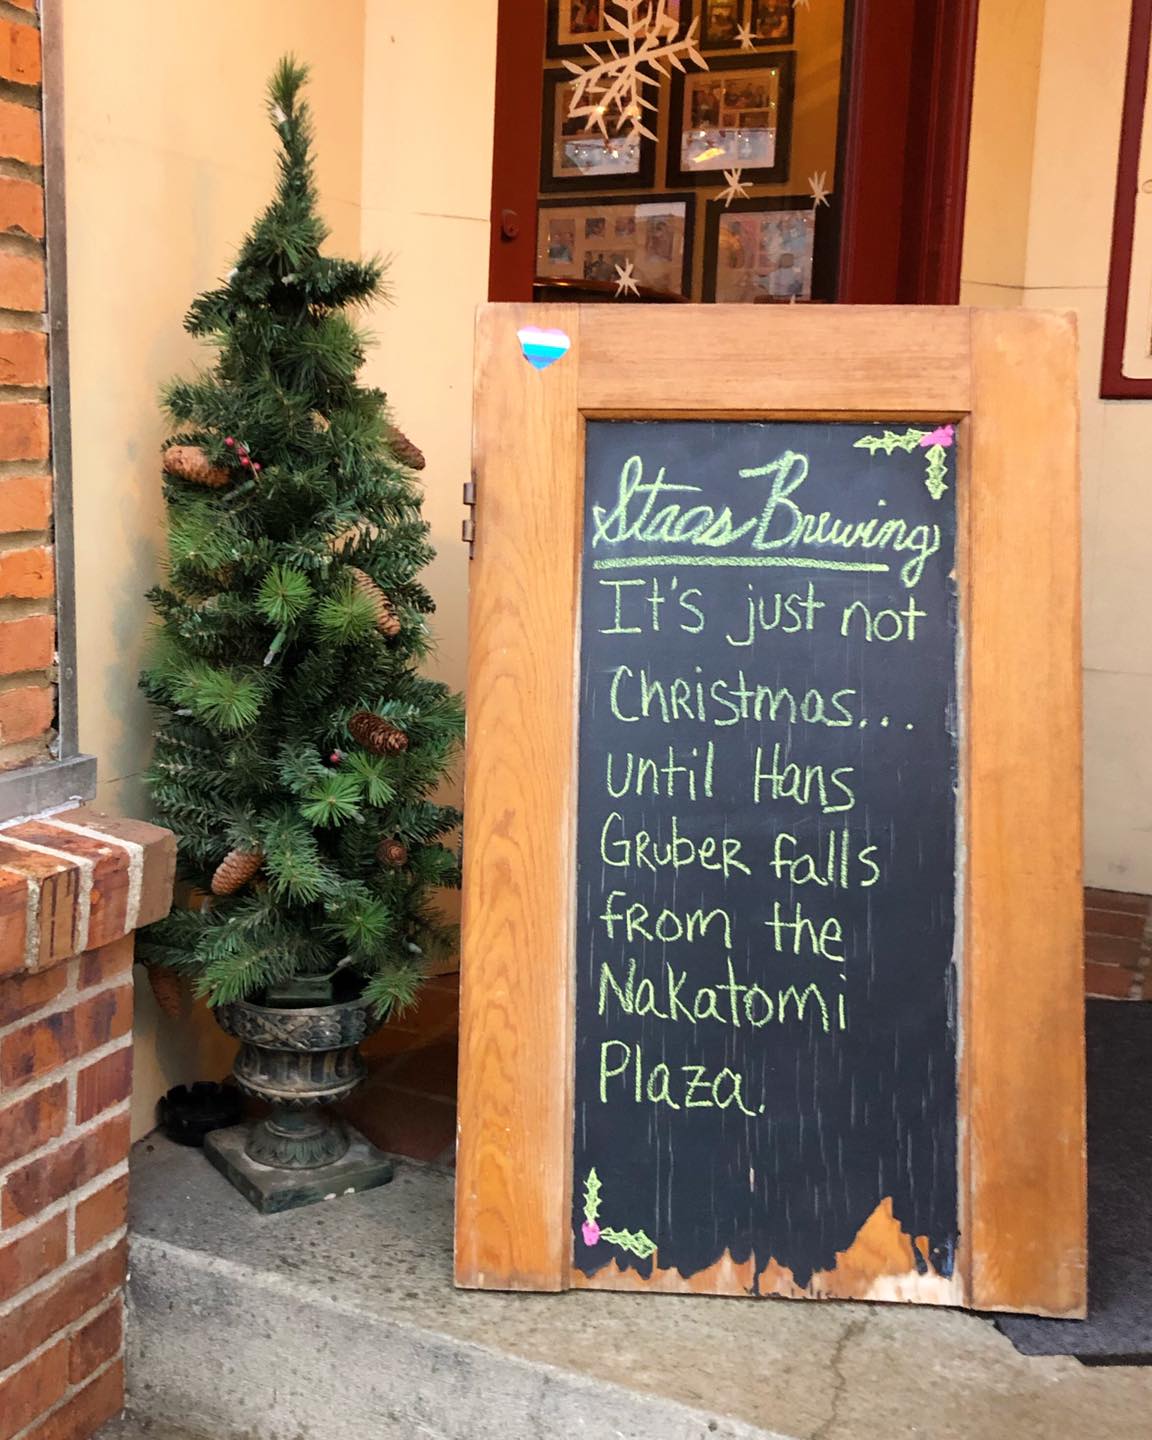 Staas Brewing
It's just not
Christmas...
until Hans
Gruber falls
from the
Nakatomi
Plaza.